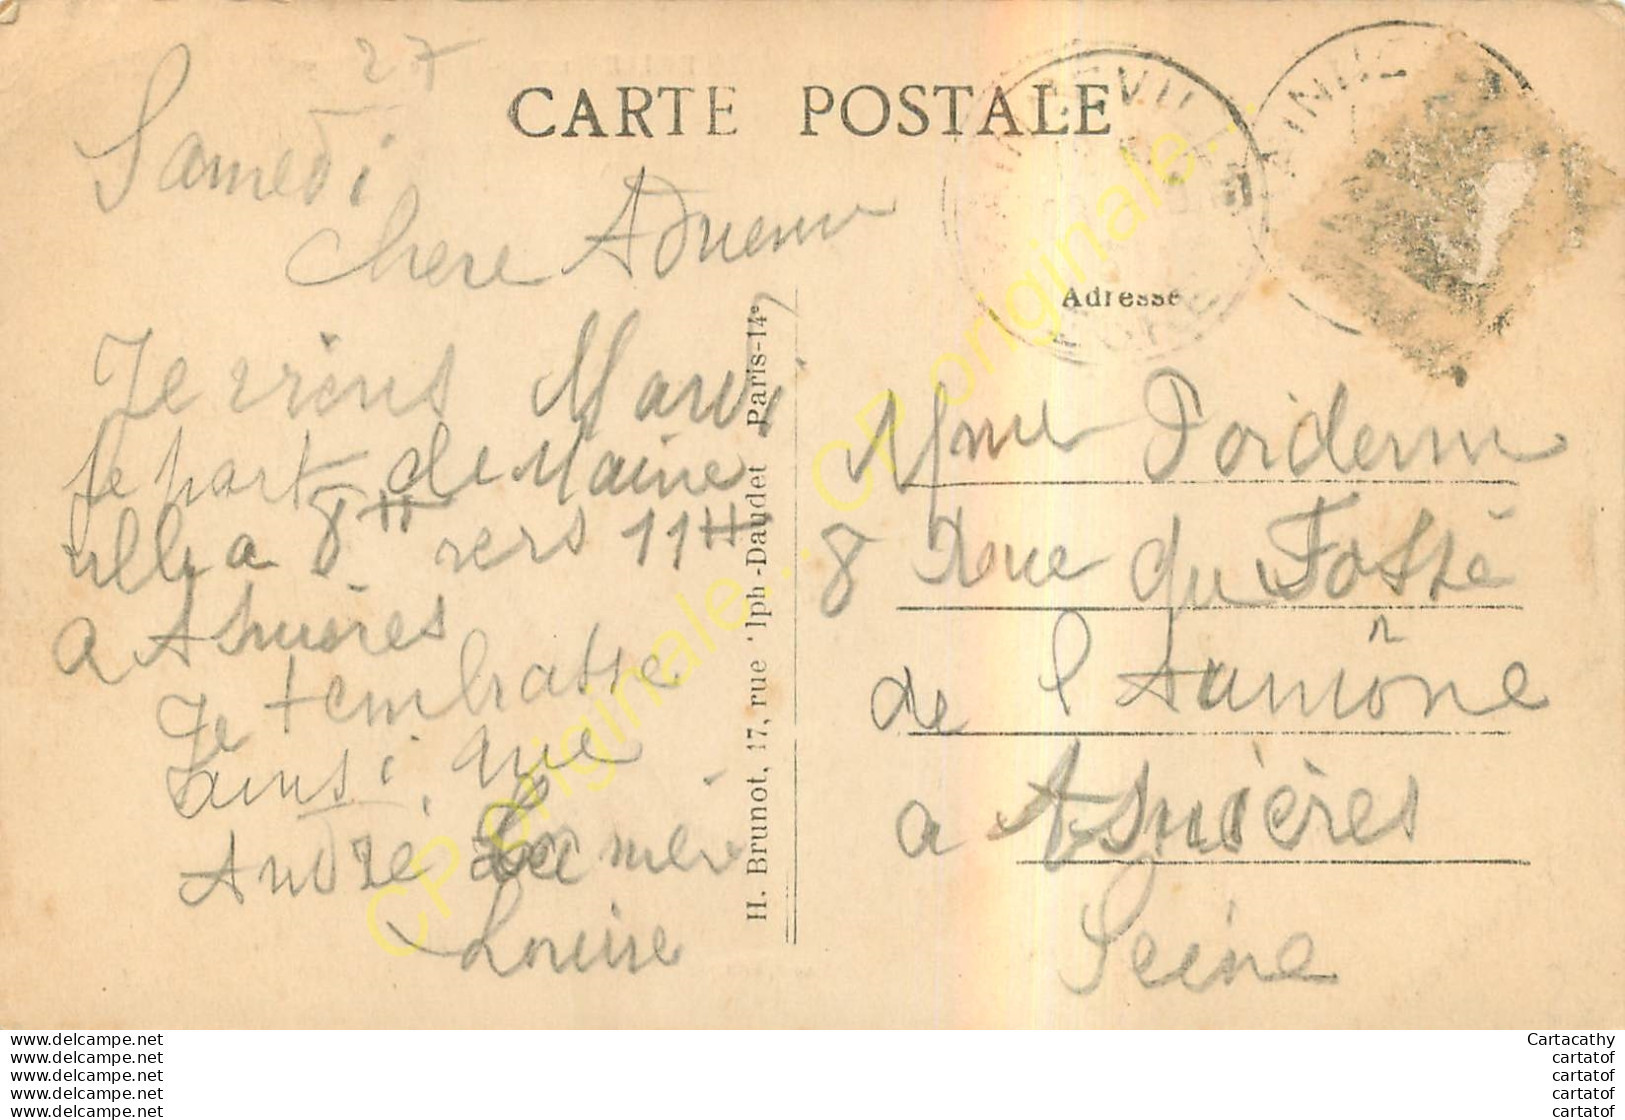 CARTE POSTALE
Samedi 27
Chere
Je viens Mardi
Je part de Maine
ville a 8H vers 11H
a Asnières
Je t'embrasse
ainsi que
André
Louise
H. Brunot, 17, rue Alph-Daudet Paris-14e
Adresse
Mme Poiderin
8 Rue du Fossé
de l'Aumône
a Asnières
Seine
CP originale.: CP originale.: CP originale.:
www.delcampe.net
www.delcampe.net
www.delcampe.net
www.delcampe.net
www.delcampe.net
Cartacathy
cartatof
cartatof
cartatof
cartatof